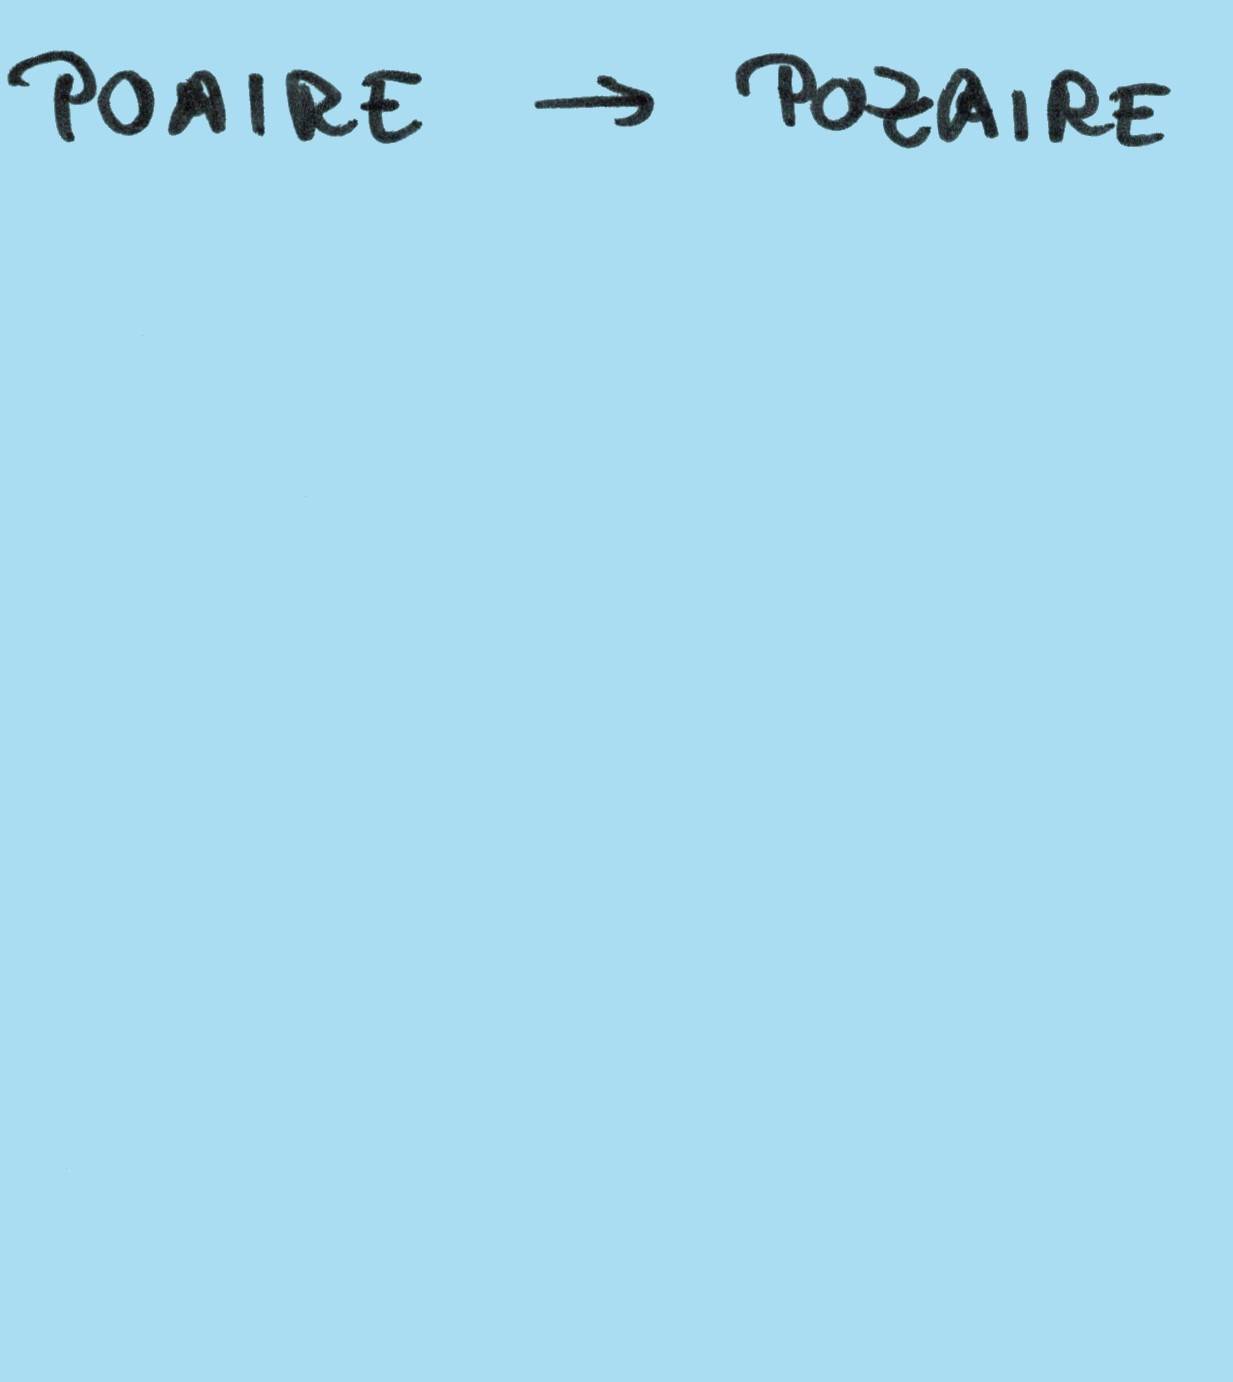 POAIRE → POZAIRE